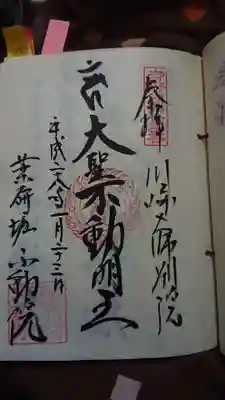 奉拝
川崎大師別院
大聖不動明王
平成二八年一月二十三日
薬研堀不動院